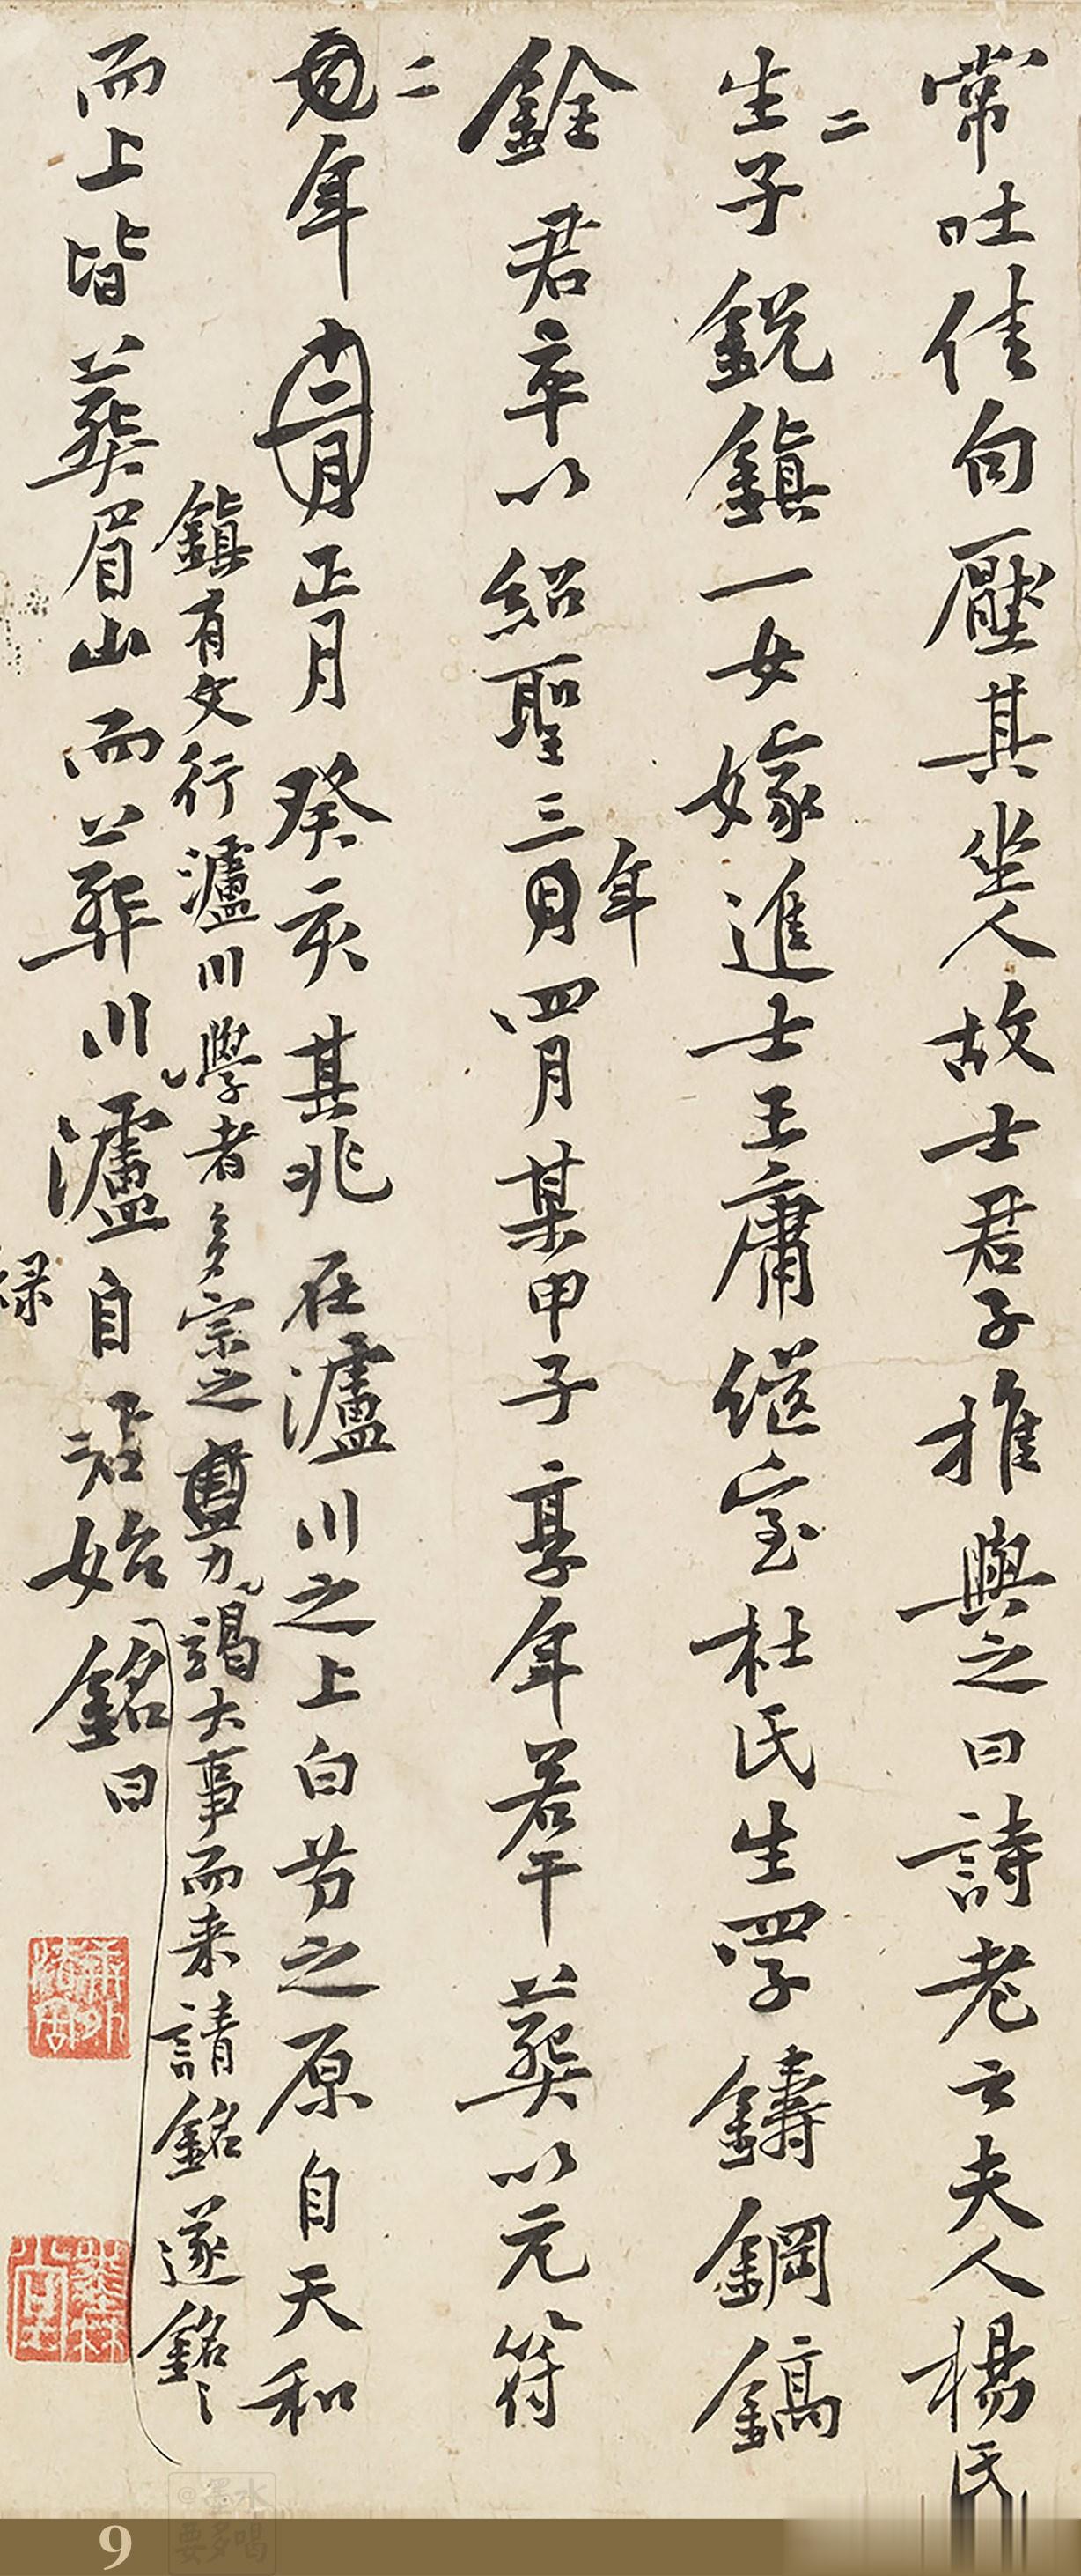 常吐佳句壓其坐人故士君子推與之曰詩老云夫人楊氏
生二子銳鎮一女嫁進士王庸継室杜氏生四子鑄鋼鎬
銓君卒以紹聖三年四月某甲子享年若干葬以元符
二年十二月正月癸亥其兆在瀘川之上白芀之原自天和
鎮有文行瀘川學者多宗之 力竭大事而来請銘遂銘之
而上皆葬眉山而葬川瀘自 始銘曰
禄
9
@墨水
要多喝